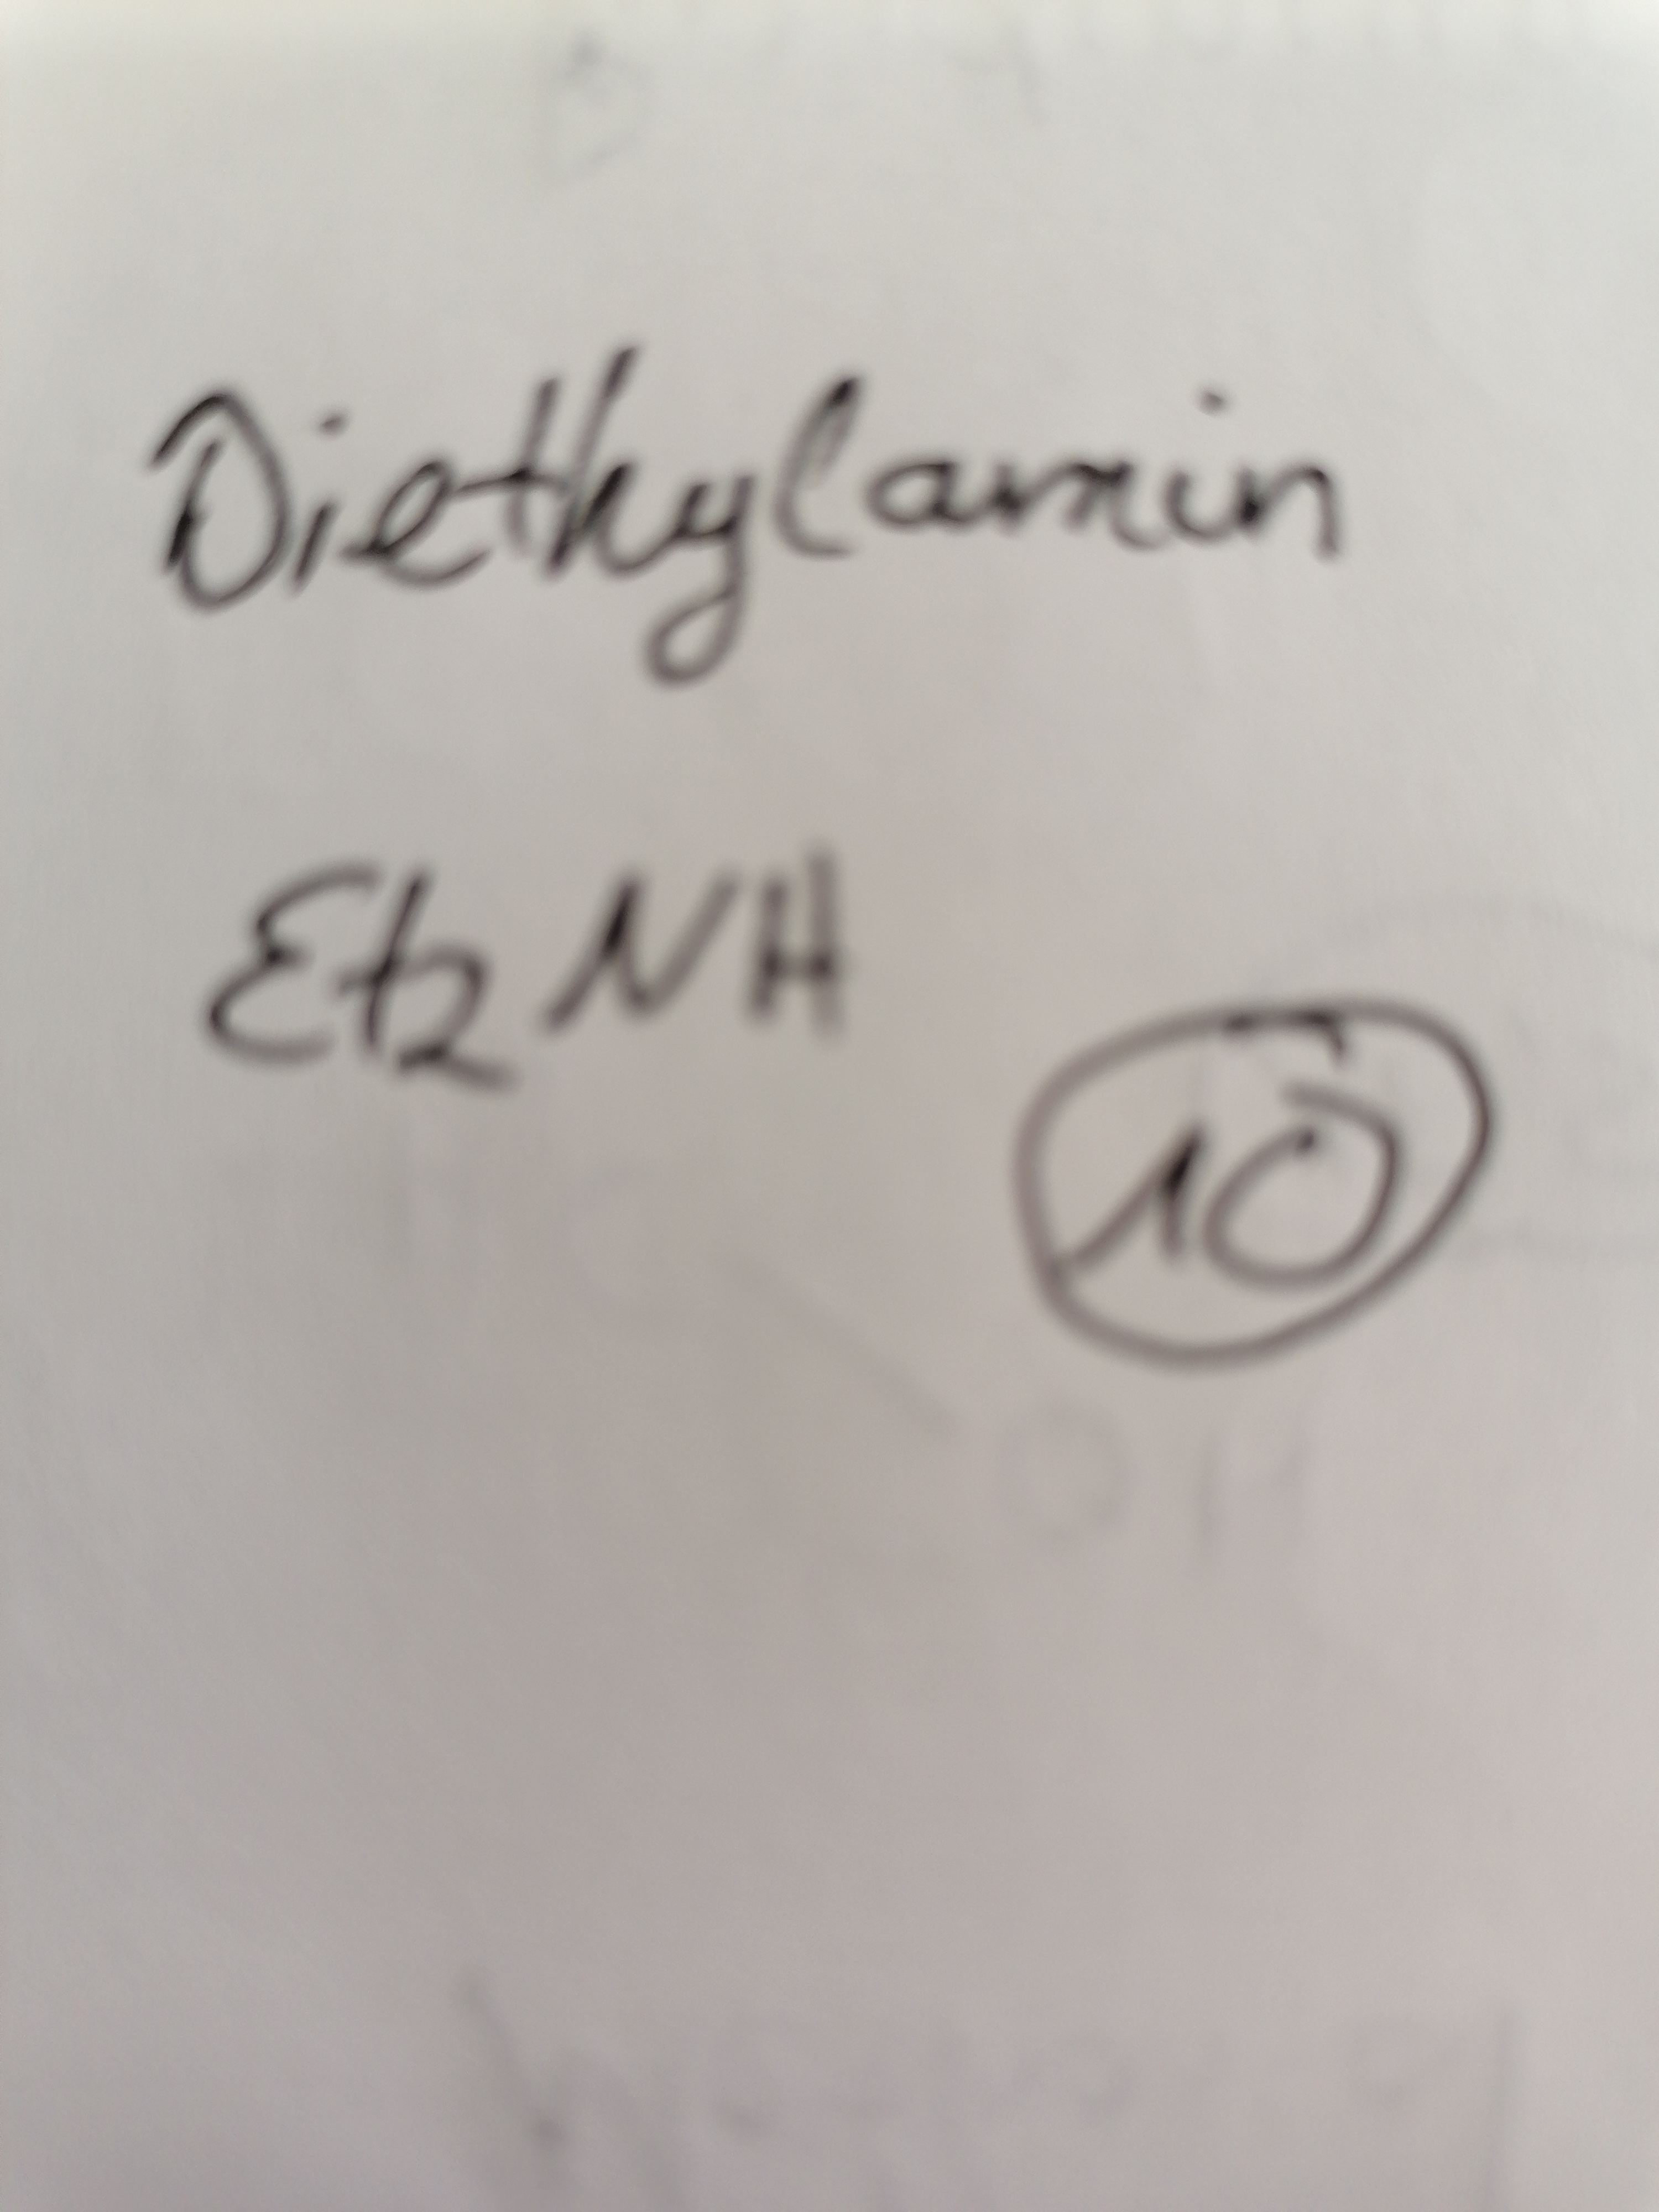 Diethylamin
Et₂NH
10
OH